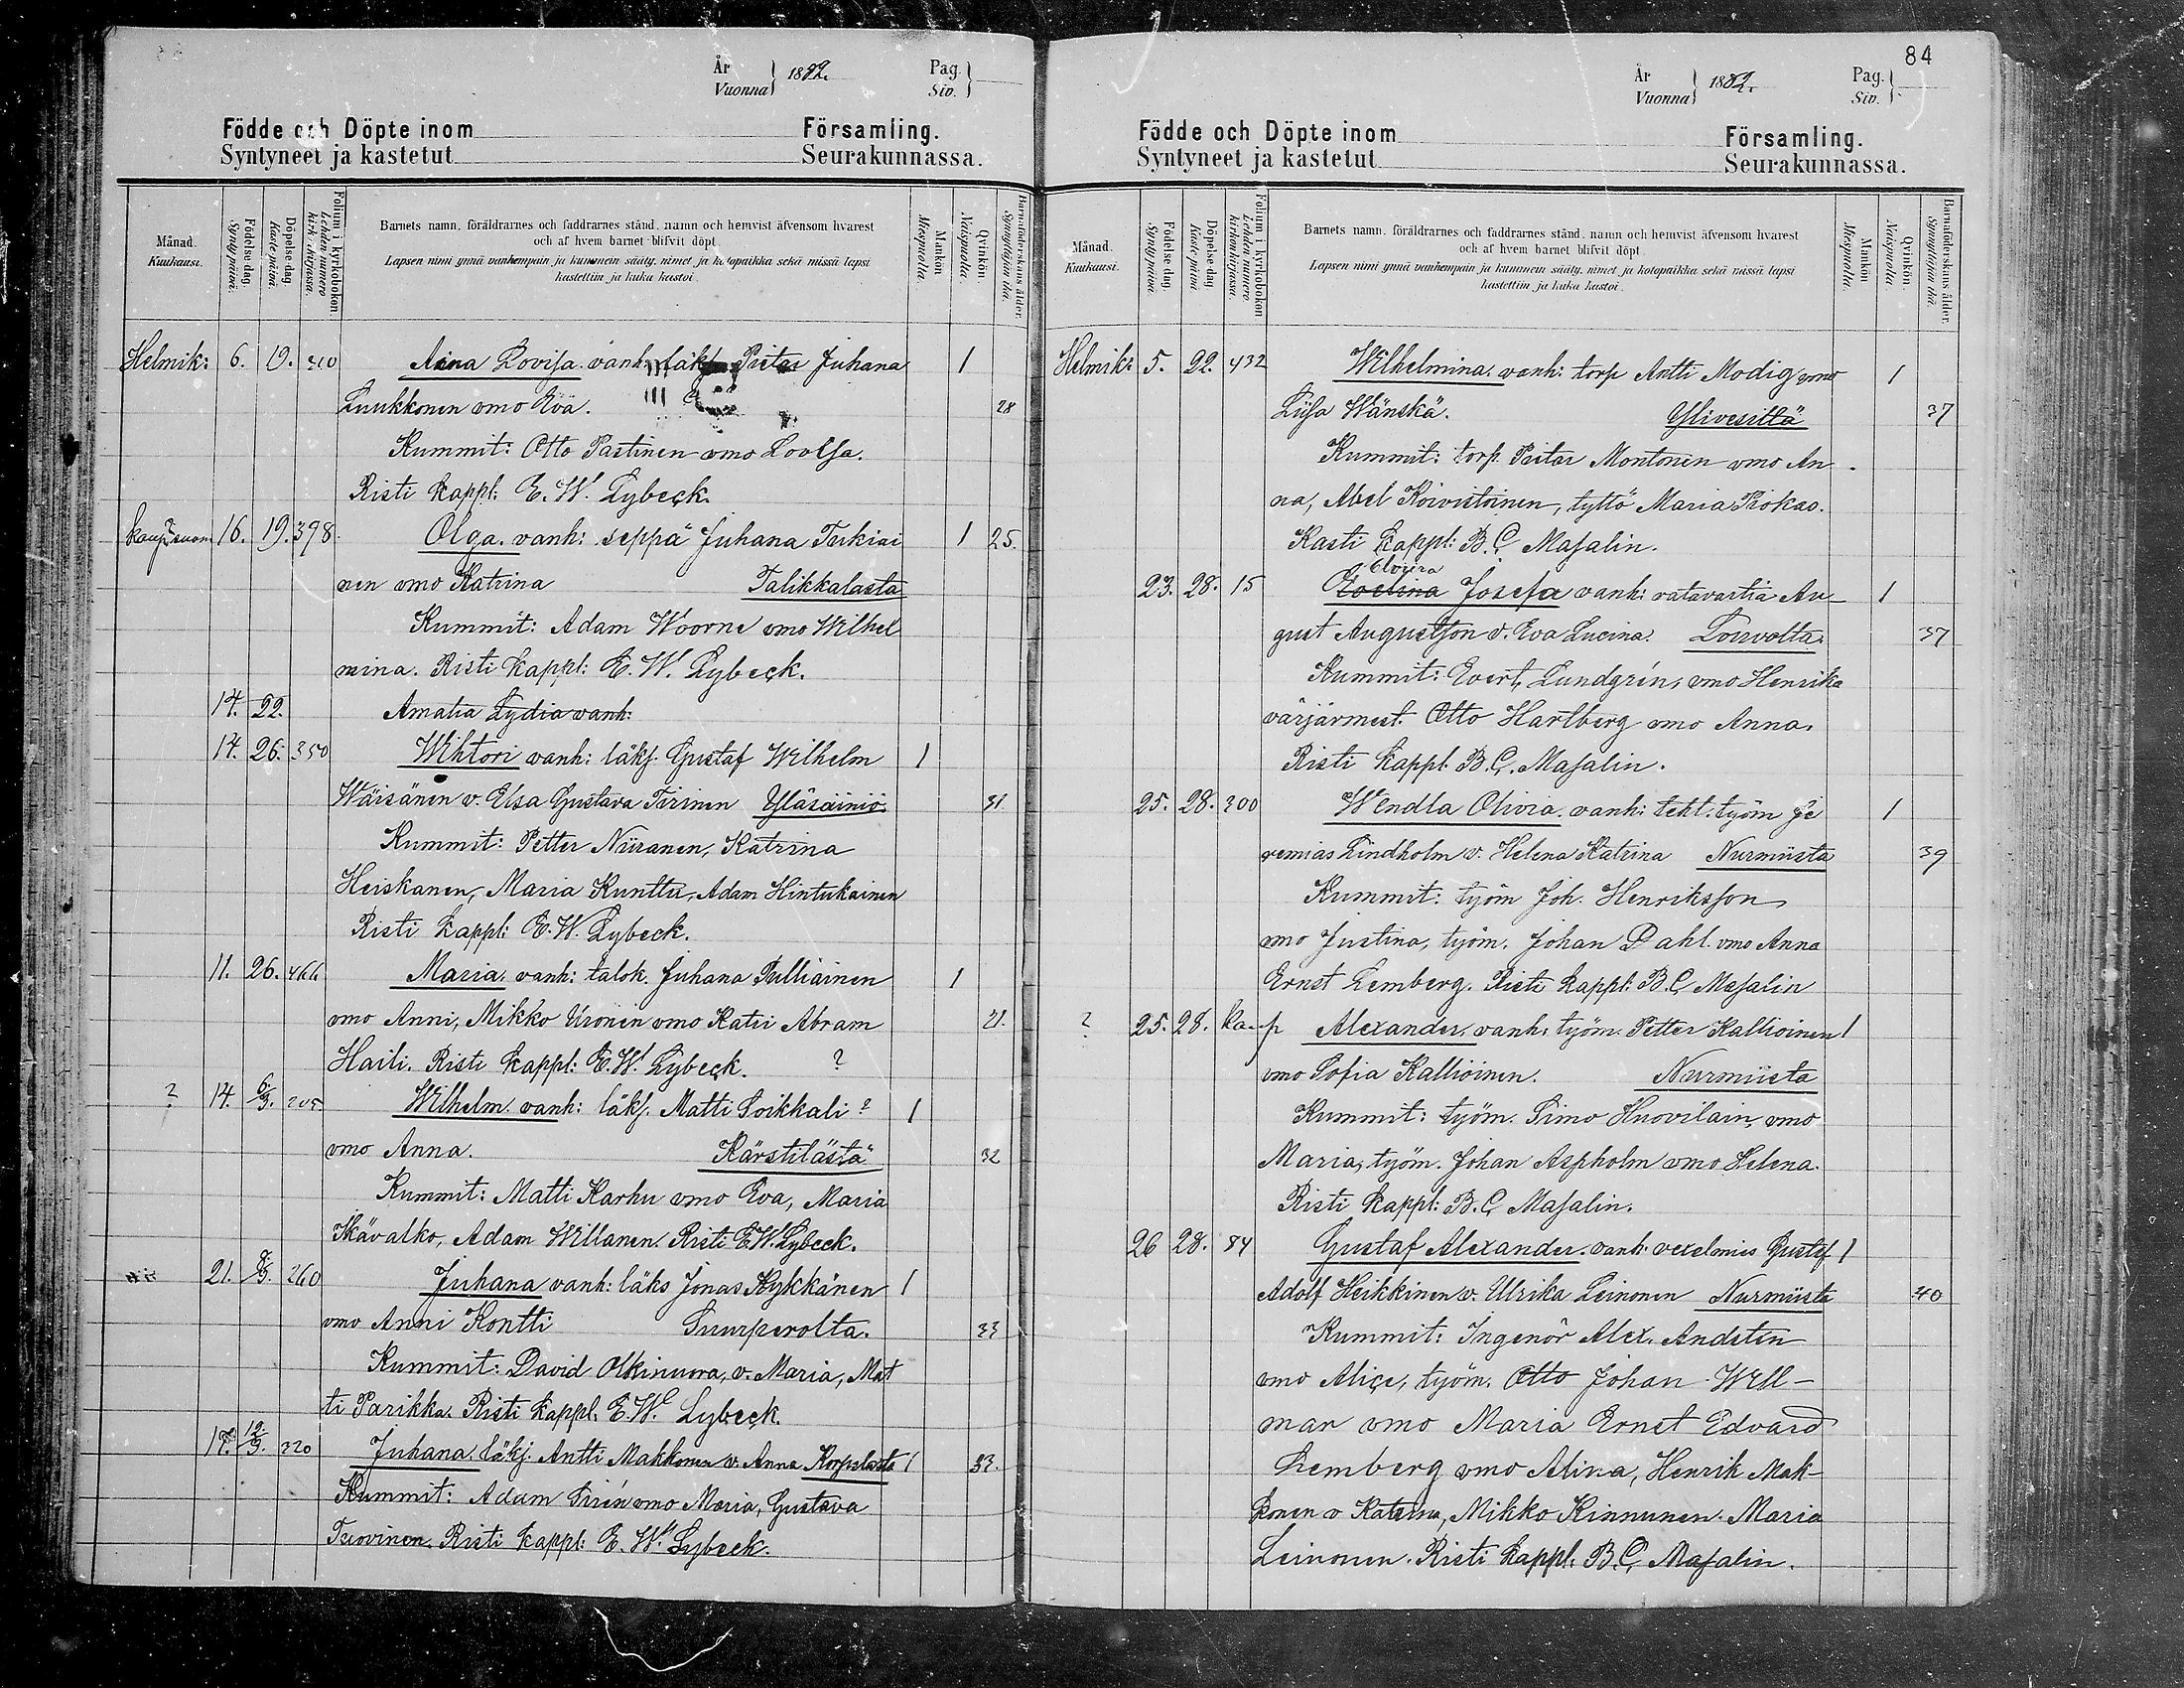 År
Vuonna } 1882.
Pag.
Siv. }
Födde och Döpte inom Församling.
Syntyneet ja kastetut Seurakunnassa.
Månad.
Kuukausi.
Födelse dag.
Synty päivä.
Döpelse dag.
Kaste päivä.
Folium i kyrkoboken.
Lehden numero kirkonkirjassa.
Barnets namn, föräldrarnes och faddrarnes stånd, namn och hemvist äfvensom hvarest
och af hvem barnet blifvit döpt.
Lapsen nimi ynnä vanhempain ja kummein sääty, nimet ja kotopaikka sekä missä lapsi
kastettiin ja kuka kastoi.
Mankön.
Miespuolta.
Qvinkön.
Naispuolta.
Barnaföderskans ålder.
Synnyttäjän ikä.
Helmik: 6. 19. 310 Aina Lovisa. vanh: läks. Pietar Juhana 1
Luukkonen vmo Evä. 28
Kummit: Otto Pastinen vmo Lovisa.
Risti Kappl: E. W. Lybeck.
16. 19. 398 Olga. vanh: seppä Juhana Turkiai 1 25.
nen vmo Katrina Talikkalasta
Kummit: Adam Woorne vmo Wilhel
mina. Risti Kappl: E. W. Lybeck.
14. 22. Amalia Lydia vanh:
14. 26. 350 Wihtori vanh: läks. Gustaf Wilhelm 1
Wäisänen v. Elsa Gustava Tirinen Yläsäiniö 31
Kummit: Petter Niiranen, Katrina
Heiskanen, Maria Kunttu, Adam Hintukainen
Risti Kappl: E. W. Lybeck.
11. 26. 466 Maria. vanh: talok. Juhana Pulliainen 1
vmo Anni, Mikko Uronen vmo Katri Abram 21.
Haili. Risti Kappl: E. W. Lybeck. ?
? 14. 6/3. 205 Wilhelm. vanh: läks. Matti Soikkali ? 1
vmo Anna. Kärstilästä 32
Kummit: Matti Karhu vmo Eva, Maria
Ikävalko, Adam Willanen. Risti E. W. Lybeck.
21. 8/3. 260 Juhana vanh: läks Jonas Kykkänen 1
vmo Anni Kontti Suurperolta. 33
Kummit: David Olkinuora, v. Maria, Mat
ti Parikka. Risti Kappl. E. W. Lybeck.
17. 12/3. 220 Juhana. läks. Antti Makkonen v. Anna Korpelasta 1 33.
Kummit: Adam Sirén vmo Maria, Gustava
Tuovinen. Risti Kappl: E. W. Lybeck.
84
År
Vuonna } 1882.
Pag.
Siv. }
Födde och Döpte inom Församling.
Syntyneet ja kastetut Seurakunnassa.
Månad.
Kuukausi.
Födelse dag.
Synty päivä.
Döpelse dag.
Kaste päivä.
Folium i kyrkoboken.
Lehden numero kirkonkirjassa.
Barnets namn, föräldrarnes och faddrarnes stånd, namn och hemvist äfvensom hvarest
och af hvem barnet blifvit döpt.
Lapsen nimi ynnä vanhempain ja kummein sääty, nimet ja kotopaikka sekä missä lapsi
kastettiin ja kuka kastoi.
Mankön.
Miespuolta.
Qvinkön.
Naispuolta.
Barnaföderskans ålder.
Synnyttäjän ikä.
Helmik: 5. 22. 432 Wilhelmina. vanh: torp Antti Modig vmo 1
Liisa Wänskä. Ylivesiltä 37
Kummit: torp. Pietar Montonen vmo An
na, Abel Koivistoinen, tyttö Maria Piokas.
Kasti Kappl: B. C. Masalin.
Elvira
23. 28. 15 Evelina Josefa vanh: ratavartia Au- 1
gust Augustsson v. Eva Lucina. Tervolta. 37
Kummit: Evert Lundgrén, vmo Henrika
värjärmest. Otto Hartberg vmo Anna.
Risti Kappl. B. C. Masalin.
25. 28. 200 Wendla Olivia. vanh: teht. työm Je 1
remias Lindholm v. Helena Katrina Nurmiista 39
Kummit: työm Joh. Henriksson
vmo Justina, työm. Johan Dahl. vmo Anna
Ernst Lemberg. Risti Kappl: B. C. Masalin
? 25. 28. Kaup Alexander. vanh: työm. Petter Kallioinen 1
vmo Sofia Kallioinen. Nurmiista
Kummit: työm. Simo Huovilain, vmo
Maria, työm. Johan Aspholm vmo Helena.
Risti Kappl: B. C. Masalin.
26 28. 84 Gustaf Alexander. vanh: vexelmies Gustaf 1
Adolf Heikkinen v. Ulrika Leinonen Nurmiista 40
Kummit: Ingenör Alex. Andstén
vmo Alice, työm. Otto Johan Well-
mar vmo Maria Ernst Edvard
Lemberg vmo Alina, Henrik Mak-
konen v Katrina, Mikko Kinnunen. Maria
Leinonen. Risti Kappl: B. C. Masalin.